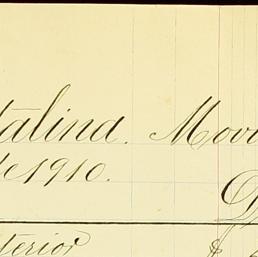 talina. Mov
de 1910.
terior $